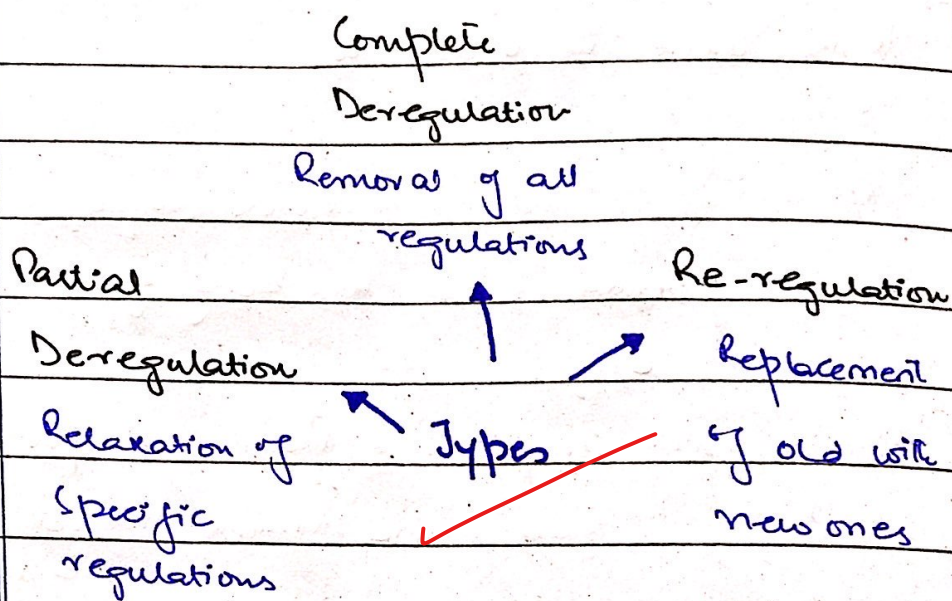 Complete
Deregulation
Removal of all
regulations
Partial
Deregulation
Relaxation of
Specific
regulations
Types
Re-regulation
Replacement
of old with
new ones